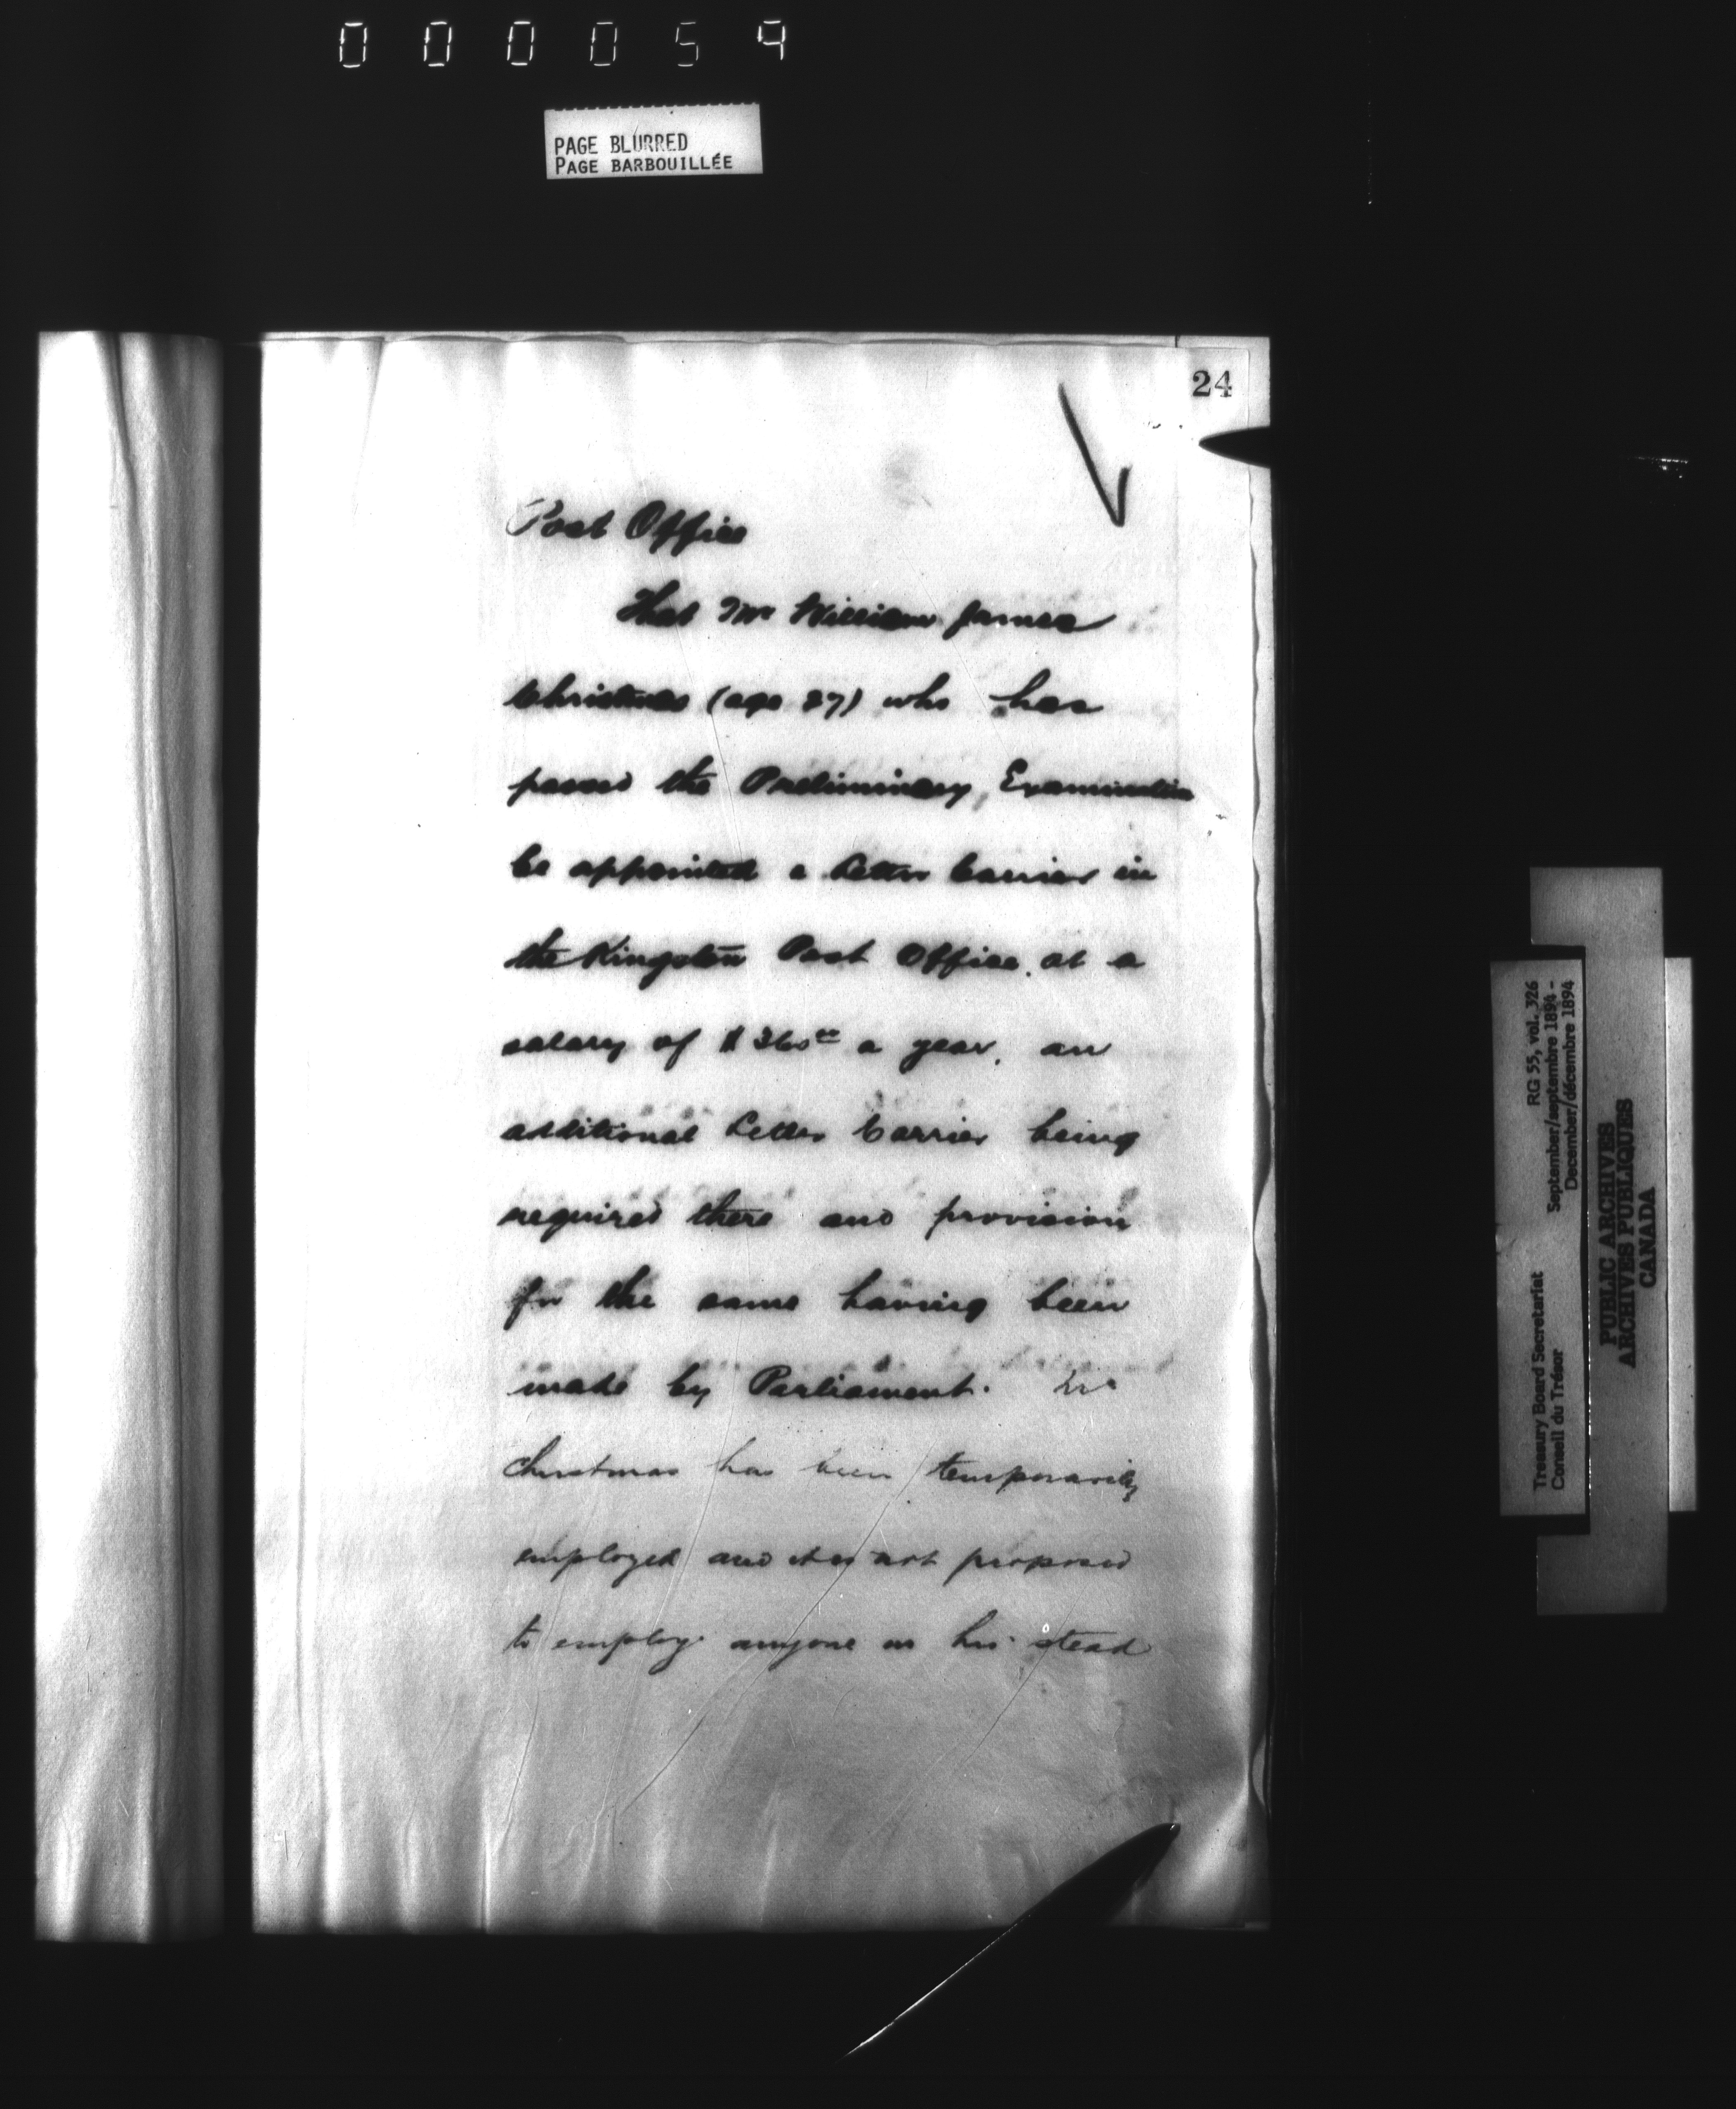 000059
PAGE BLURRED
PAGE BARBOUILLÉE
24
Post Office
That Mr William James
Christmas (age 27) who has
passed the Preliminary Examination
be appointed a Letter Carrier in
the Kingston Post Office, at a
salary of $360 00 a year, an
additional Letter Carrier being
required there and provision
for the same having been
made by Parliament. Mr
Christmas has been temporarily
employed and it is not proposed
to employ anyone in his stead
Treasury Board Secretariat RG 55, vol. 326
Conseil du Trésor September/septembre 1894 -
December/décembre 1894
PUBLIC ARCHIVES
ARCHIVES PUBLIQUES
CANADA